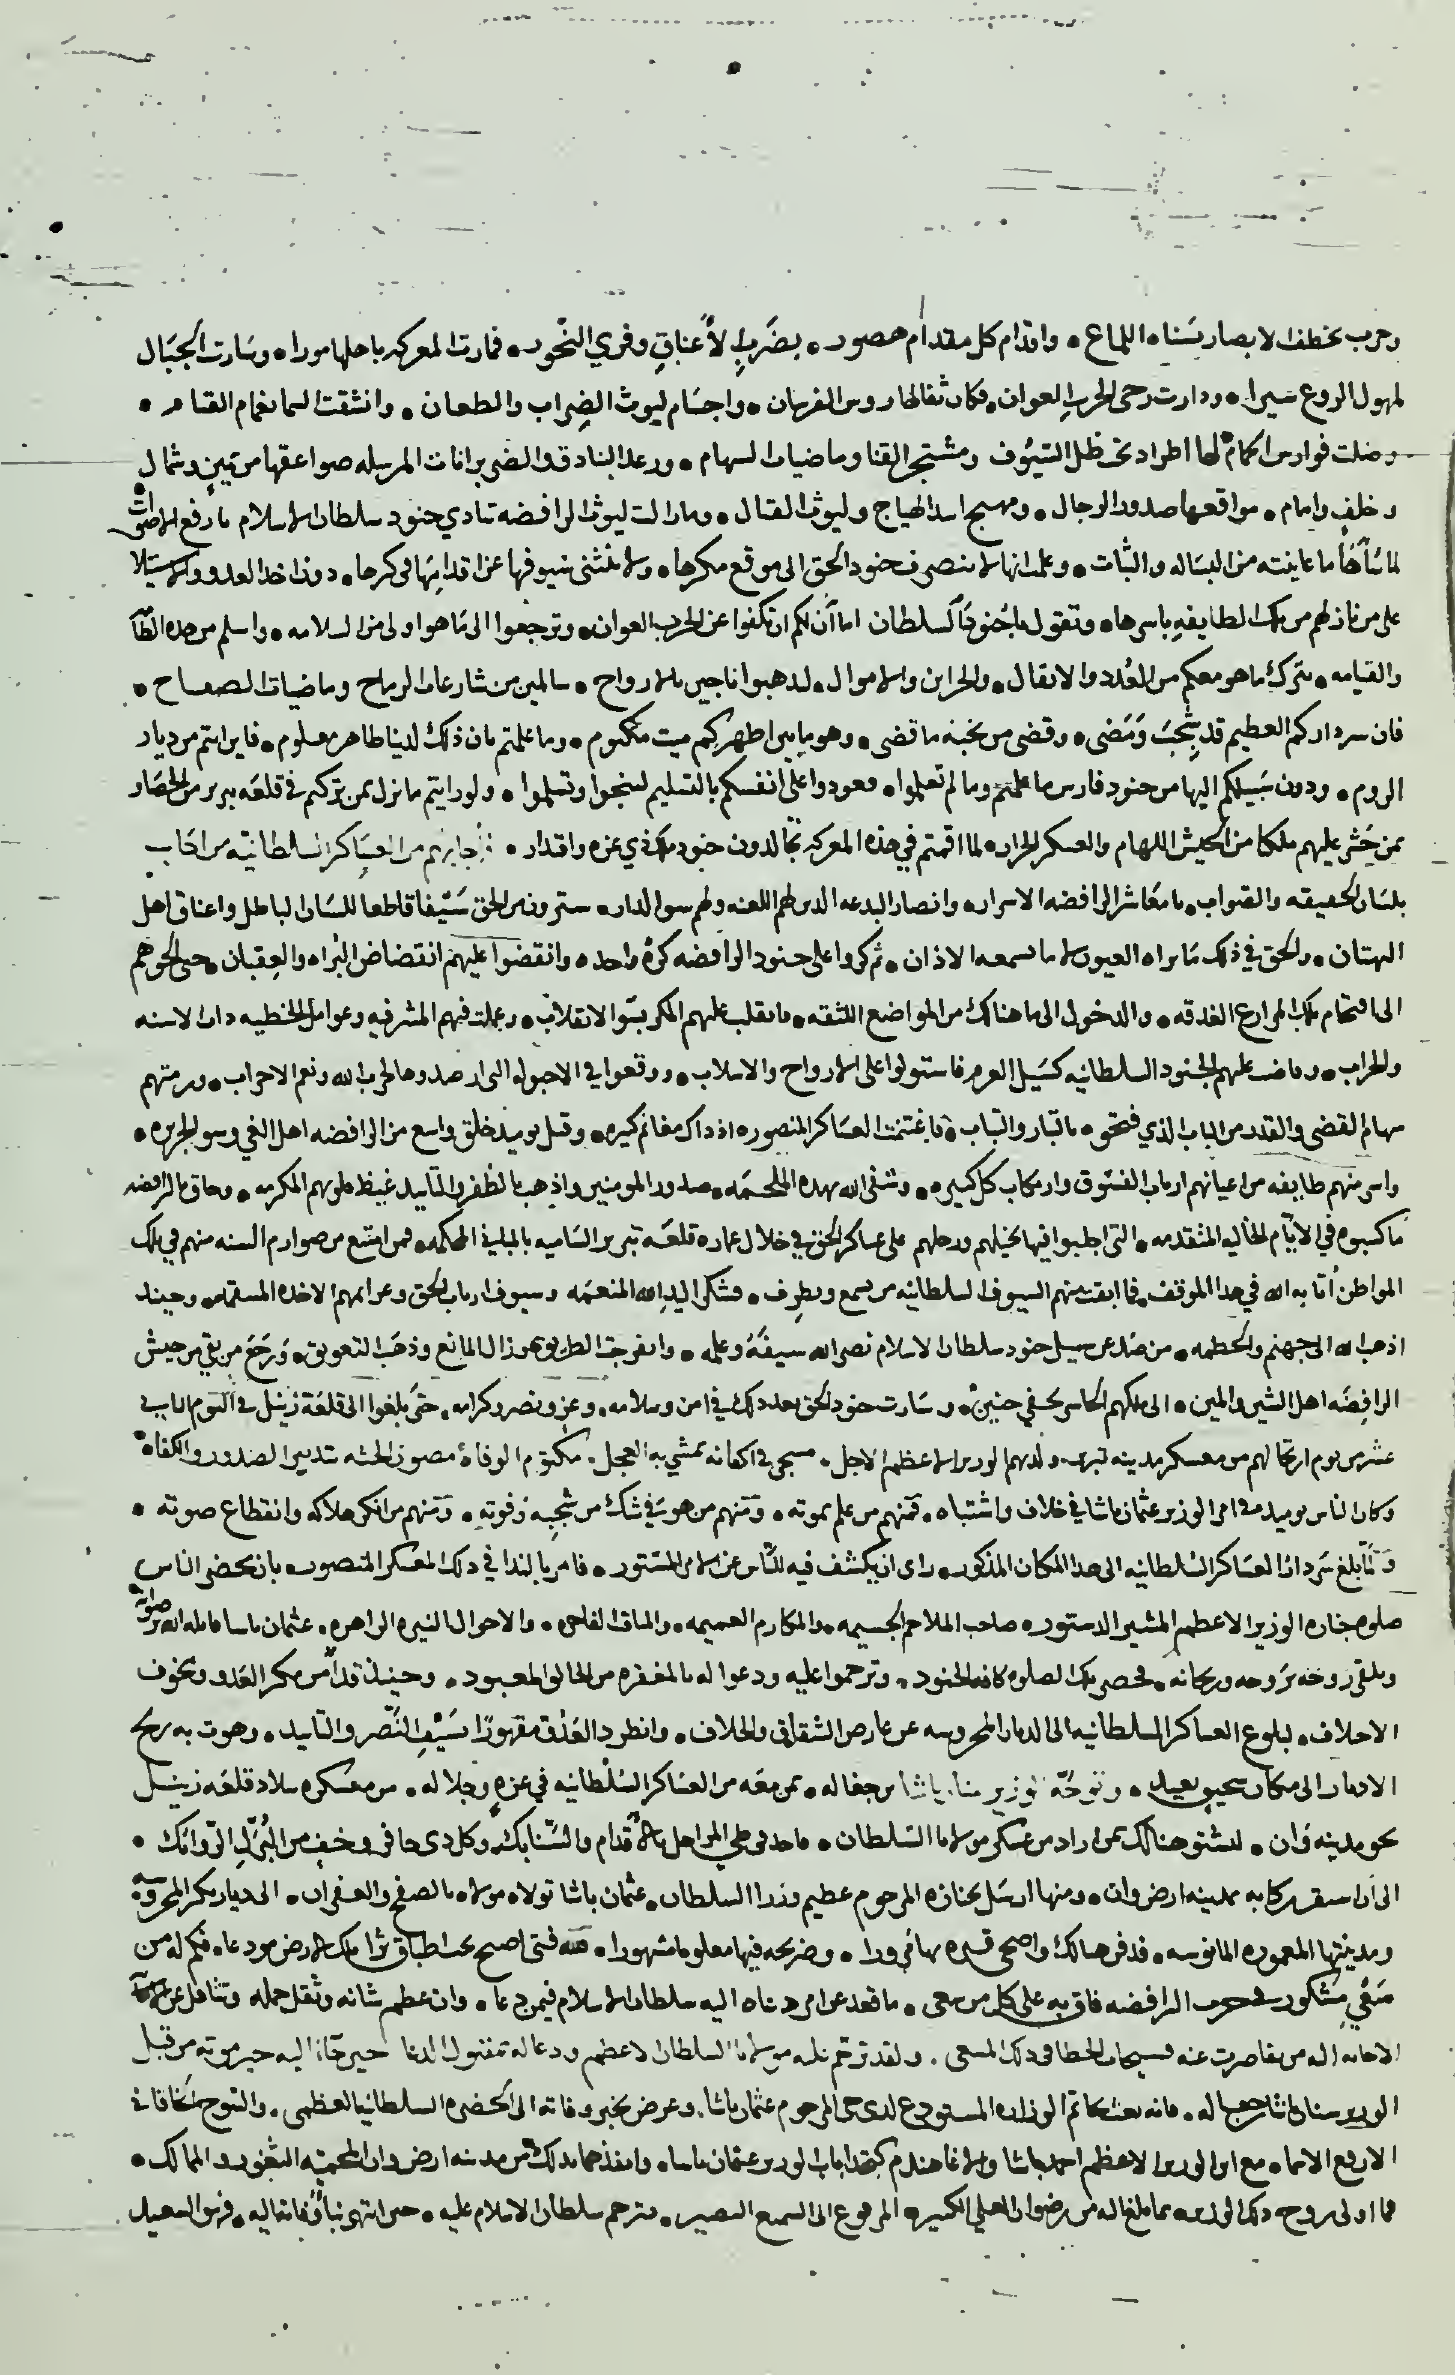 وحرب تخطف الابصار بسناه اللماع ۰ واقدام كل مقدام هصور ۰ بضرب الأعناق وفري النحور ۰ فمارت المعركه باهلها مورا ۰ وسارت الجبال
لمهول الروع سيرا ۰ ودارت رحى الحرب العوان ۰ فكان ثفالها روس الفرسان ۰ واجسام ليوث الضراب والطعان ۰ وانشقت السما بغمام القتام ۰
وضلت فوارس الحمام لها اطراد تحت ظل السيوف ومشتجر القنا وماضيات السهام ۰ ورعد البنادق والضبرزانات المرسله صواعقها من يمين وشمال
وخلف وامام ۰ مواقعها صدور الرجال ۰ ومهج اسد الهياج وليوث القتال ۰ وما زالت ليوث الرافضه تنادي جنود سلطان الاسلام بارفع الاصوات
لما ساءها ما عاينته من البساله والثبات ۰ وعلمت انها لا تنصرف جنود الحق الى موقع مكرها ۰ ولا تنثني سيوفها عن اقدامها في كرها ۰ دون اخذ العدو والاستيلا
على من نازلهم من تلك الطايفه باسرها ۰ وتقول يا جنود السلطان اما آن لكم ان تكفوا عن الحرب العوان ۰ وترجعوا الى ما هو اولى من السلامه ۰ واسلم من هذه الطآ
والقيامه ۰ بترك ما هو معكم من العُدد والاثقال ۰ والخزاين والاموال ۰ لتذهبوا ناجين بالارواح ۰ سالمين من شارعات الرماح وماضيات الصفاح ۰
فان سرداركم العظيم قد شجب ومضى ۰ وقضى من نحبه ما قضى ۰ وهو ما بين اظهركم ميت مكتوم ۰ وما علمتم بان ذلك لدينا ظاهر معلوم ۰ فاين انتم من ديار
الروم ۰ ودون سبيلكم اليها من جنود فارس ما علمتم وما لم تعلموا ۰ فعودوا على انفسكم بالتسليم لتنجوا وتسلموا ۰ ولو رايتم ما نزل بمن تركتم في قلعه تبريز من الحصار
بمن حشر عليهم ملكنا من الجيش اللهام والعسكر الجرار ۰ لما اقمتم في هذه المعركه تجالدون جنود ملك ذي عزه واقتدار ۰ فأجابهم من العساكر السلطانيه من اجاب
بلسان الحقيقه والصواب ۰ يا معاشر الرافضه الاسرار ۰ وانصار البدعه الذين لهم اللعنه ولهم سو الدار ۰ سترون من الحق سيفا قاطعا للسان الباطل واعناق اهل
البهتان ۰ والحق في ذلك ما يراه العيون لا ما تسمعه الاذان ۰ ثم كروا على جنود الرافضه كرة واحده ۰ وانقضوا عليهم انقضاض البزاه والعقبان ۰ حتى الجوهم
الى اقتحام تلك المزارع الغدقه ۰ والدخول الى ما هنالك من المواضع اللثقه ۰ فانقلب عليهم المكر بسو الانقلاب ۰ وعملت فيهم المشرفيه وعوامل الخطيه ذات الاسنه
والحراب ۰ وفاضت عليهم الجنود السلطانيه كسيل العرم فاستولوا على الارواح والاسلاب ۰ ووقعوا في الاحبوله التي ارصدوها لحزب الله ونعم الاحزاب ۰ ورمتهم
سهام القضى والقدر من الباب الذي فتحوه بالتبار والتباب ۰ فاغتنمت العساكر المنصوره اذ ذاك مغانم كثيره ۰ وقتل يوميذ خلق واسع من الرافضه اهل الغي وسو الجريره ۰
واسر منهم طايفه من اعيانهم ارباب الفسوق وارتكاب كل كبيره ۰ وشفى الله بهذه الملحمه ۰ صدور المومنين واذهب بالظفر والتاييد غيظ قلوبهم المكرمه ۰ وحاق بالرافضه
ما كسبوه في الأيام الخاليه المتقدمه ۰ التي اجلبوا فيها بخيلهم ورجلهم على عساكر الحق في خلال عماره قلعة تبريز الساميه بالمباني المحكمه ۰ فمن امتنع من صوارم السنه منهم في تلك
المواطن أتا به الله في هذا الموقف ۰ فما ابقت منهم السيوف السلطانيه من يسمع ويطرف ۰ فشكرا لايدي الله المنعمه وسيوف ارباب الحق وعزايمهم الاخذه المستقمه ۰ وحينيذ
اذهب الله الى جهنم والحطمه ۰ من ضل عن سبيل جنود سلطان الاسلام نصر الله سيفه وعلمه ۰ وانفرجت الطريق بزوال المانع وذهب التعويق ۰ ورجع من بقي من جيش
الرافضه اهل الشين والمين ۰ الى ملكهم الخاسر بخفي حنين ۰ وسارت جنود الحق بعد ذلك في امن وسلامه ۰ وعز ونصر وكرامه ۰ حتى بلغوا الى قلعة زينل في اليوم الثاني
عشر من يوم ارتحالهم من معسكر مدينه تبريز ۰ ولديهم الوزير الاعظم الاجل ۰ مسجى في اكفانه تمشي به العجل ۰ مكتوم الوفاة مصون الجثه بتدبير الصدور والكفاه
وكان الناس يوميذ في امر الوزير عثمان باشا في خلاف واشتباه ۰ فمنهم من علم بموته ۰ ومنهم من هو في شك من شجبه وفوته ۰ ومنهم من انكر هلاكه وانقطاع صوته ۰
ولما بلغ سردار العساكر السلطانيه الى هذا المكان المذكور ۰ راى ان يكشف فيه للناس عن الامر المستور ۰ فامر بالندا في ذلك المعسكر المنصور ۰ بان يحضر الناس
صلوه جنازه الوزير الاعظم المشير الدستور ۰ صاحب الملاحم الجسيمه ۰ والمكارم العميمه ۰ والمناقب الفاخره ۰ والاحوال النيره الزاهره ۰ عثمان باشا قابله الله برضوانه
وتلقى روحه بروحه وريحانه ۰ فحضر تلك الصلوه كافه الجنود ۰ وترحموا عليه ودعوا له بالمغفره من الخالق المعبود ۰ وحينيذ قد أمن مكر العدو وتخوف
الاخلاف ۰ لبلوع العساكر السلطانيه الى الديار المحروسه عن عارض الشقاق والخلاف ۰ وانطرد العدو مقهورًا بسيف النصر والتاييد ۰ وهوت به ريح
الادبار الى مكان سحيق بعيد ۰ وتوجه الوزير سنان باشا بن جغاله ۰ بمن معه من العساكر السلطانيه في عزه وجلاله ۰ من معسكره ببلاد قلعه زينل
نحو مدينه وان ۰ لتشتو هنالك بمن اراد من عسكر مولانا السلطان ۰ فاجد في طي المراحل بالاقدام والسنابك وكل ذي حافر وخف من البُزَّل الروانك ۰
الى أن استقر ركابه بمدينه ارض وان ۰ ومنها ارسل بجنازه المرحوم عظيم وزرا السلطان ۰ عثمان باشا تولاه مولاه بالصفح والغفران ۰ الى ديار بكر المحروسه
ومدينتها المعموره المانوسه ۰ فدفن هنالك واضحى قبره بها مزورا ۰ وضريحه فيها معلوما مشهورا ۰ فلله فتى اصبح تحت اطباق ثرا تلك الارض مودعا ۰ فكم له من
سَعْي مشكور في حرب الرافضه فاق به على كل من سعى ۰ ما قعد عن امر دعاه اليه سلطان الاسلام فيمن دعا ۰ وان عظم شانه وثقل حمله وتثاقل عن
الاجابه اليه من تقاصرت عنه فسيحات الخطا في ذلك المسعى ۰ ولقد ترحم عليه مولانا السلطان الاعظم ودعا له بمقبول الدعا حين جاء اليه خبر موته من قبل
الوزير سنان باشا بن جغاله ۰ فانه بعث بخاتم الوزاره المستودع لدى المرحوم عثمان باشا ۰ وعرض بخبر وفاته الى الحضره السلطانيه العظمى ۰ والتوح الخاقاني
الارفع الاحما ۰ مع ابن الوزير الاعظم احمد باشا والاغا هندم كتخدا باب الوزير عثمان باشا ۰ وانفذهما بذلك من مدينه ارض وان المحميه الثغور والممالك ۰
فما اولى بروح ذلك الوزير ۰ بما بلغ اليه من رضوان العلي الكبير ۰ المرفوع الى السميع البصير ۰ بترحم سلطان الاسلام عليه ۰ حين انتهى نبأ وفاته اليه ۰ فهو السعيد